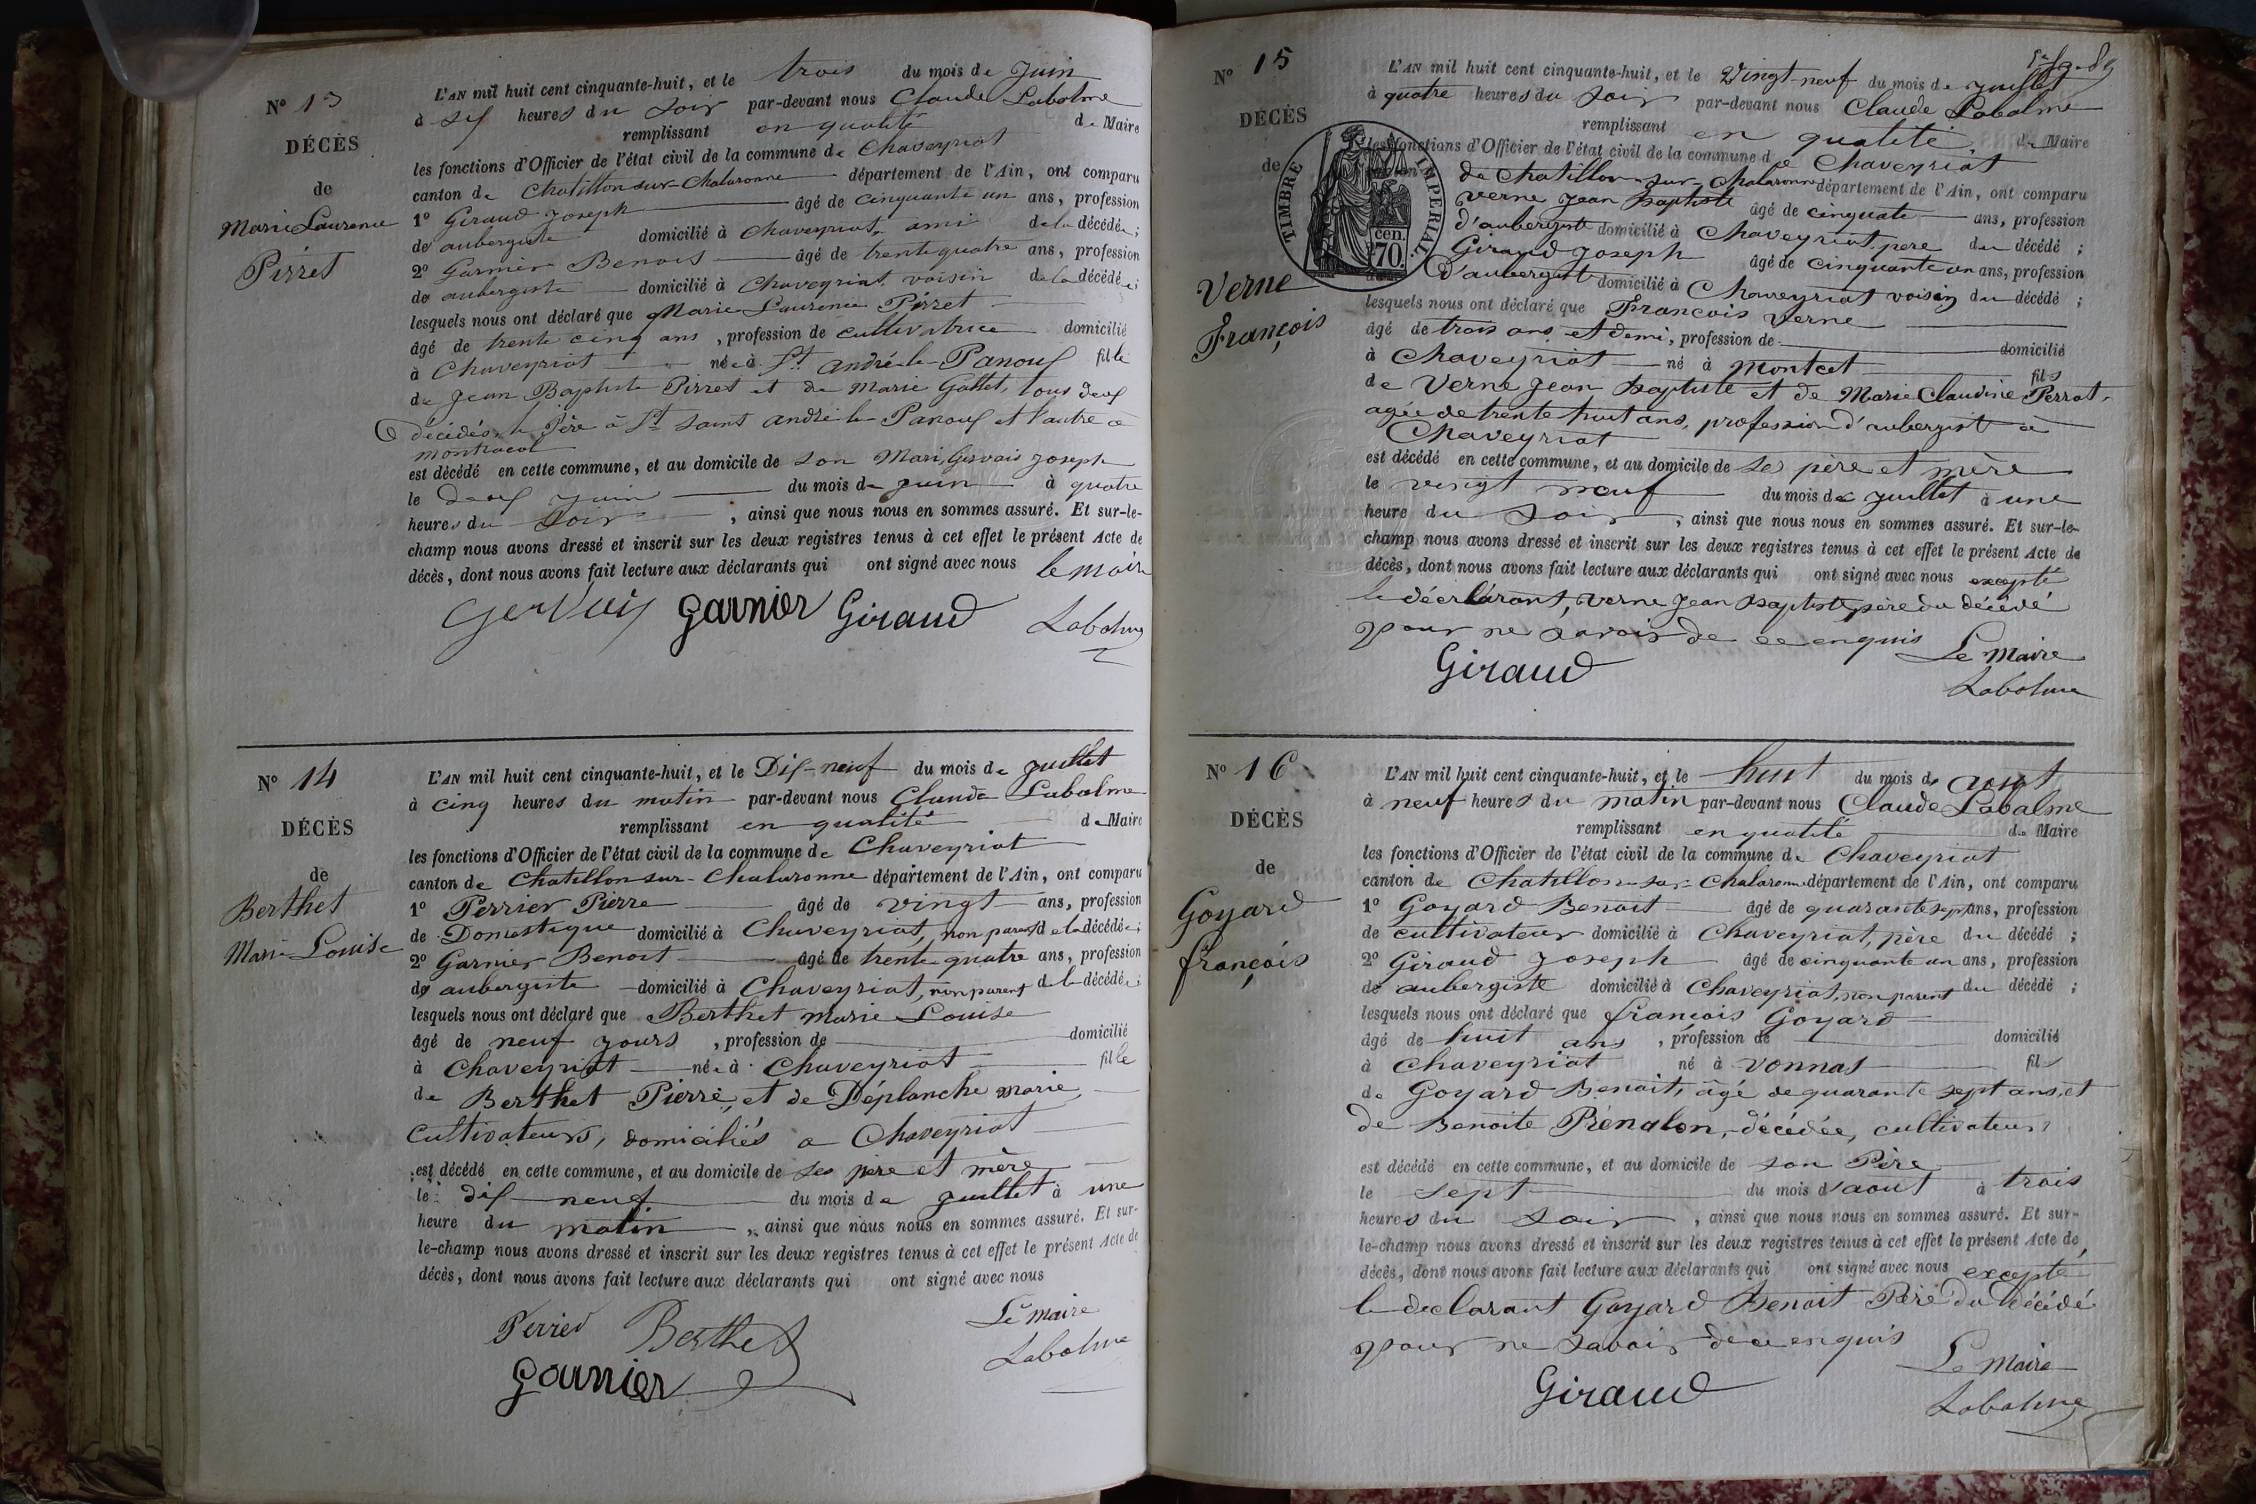 N° 13
DÉCÈS
de
Marie Laurence
Pirret
L'AN mil huit cent cinquante-huit, et le trois du mois de Juin
à six heures du soir par-devant nous Claude Labalme
remplissant en qualité de Maire
les fonctions d'Officier de l'état civil de la commune de Chaveyriat
canton de Chatillon sur Chalaronne département de l'Ain, ont comparu
1° Giraud Joseph âgé de cinquante un ans, profession
de aubergiste domicilié à Chaveyriat ami de la décédée ;
2° Garnier Benoit âgé de trente quatre ans, profession
de aubergiste domicilié à Chaveyriat voisin de la décédée ;
lesquels nous ont déclaré que Marie Laurence Pirret
âgé de trente cinq ans, profession de cultivatrice domicilié
à Chaveyriat née à St André-le-Panoux fille
de Jean Baptiste Pirret et de Marie Gallet, tous deux
décédés, le Père à St saint André le Panoux et l'autre à
montracol
est décédé en cette commune, et au domicile de son Mari Gervais Joseph
le deux juin du mois de juin à quatre
heures du soir, ainsi que nous nous en sommes assuré. Et sur-le-
champ nous avons dressé et inscrit sur les deux registres tenus à cet effet le présent Acte de
décès, dont nous avons fait lecture aux déclarants qui ont signé avec nous le maire
Gervais Garnier Giraud Labalme
N° 14
DÉCÈS
de
Berthet
Marie Louise
L'AN mil huit cent cinquante-huit, et le Dix-neuf du mois de juillet
à cinq heures du matin par-devant nous Claude Labalme
remplissant en qualité de Maire
les fonctions d'Officier de l'état civil de la commune de Chaveyriat
canton de Chatillon sur-Chalaronne département de l'Ain, ont comparu
1° Perrier Pierre âgé de vingt ans, profession
de Domestique domicilié à Chaveyriat, non parent de la décédée ;
2° Garnier Benoit âgé de trente quatre ans, profession
de aubergiste domicilié à Chaveyriat, non parent de la décédée ;
lesquels nous ont déclaré que Berthet Marie Louise
âgé de neuf jours, profession de domicilié
à Chaveyriat née à Chaveyriat fille
de Berthet Pierre, et de Déplanche Marie,
Cultivateurs, domiciliés a Chaveyriat
est décédé en cette commune, et au domicile de ses père et mère
le dix neuf du mois de juillet à une
heure du matin, ainsi que nous nous en sommes assuré. Et sur-
le-champ nous avons dressé et inscrit sur les deux registres tenus à cet effet le présent Acte de
décès, dont nous avons fait lecture aux déclarants qui ont signé avec nous
Perrier Berthet Le maire
Garnier Labalme
N° 15
DÉCÈS
de
Verne
François
TIMBRE IMPERIAL
70 cen.
L'AN mil huit cent cinquante-huit, et le Vingt-neuf du mois de juillet
à quatre heures du soir par-devant nous Claude Labalme
remplissant en qualité de Maire
les fonctions d'Officier de l'état civil de la commune de Chaveyriat
de Chatillon-sur-Chalaronne département de l'Ain, ont comparu
Verne Jean Baptiste âgé de cinquate ans, profession
d'aubergiste domicilié à Chaveyriat, père du décédé ;
Giraud Joseph âgé de cinquante un ans, profession
d'aubergist domicilié à Chaveyriat voisin du décédé ;
lesquels nous ont déclaré que François Verne
âgé de trois ans et demi, profession de domicilié
à Chaveyriat né à Montcet fils
de Verne Jean Baptiste et de Marie Claudine Perrat,
agée de trente huit ans, profession d'aubergist à
Chaveyriat
est décédé en cette commune, et au domicile de ses père et mère
le vingt neuf du mois de juillet à une
heure du soir, ainsi que nous nous en sommes assuré. Et sur-le-
champ nous avons dressé et inscrit sur les deux registres tenus à cet effet le présent Acte de
décès, dont nous avons fait lecture aux déclarants qui ont signé avec nous excepté
le déclarant, Verne Jean Baptiste, père du décédé
pour ne savoir de ce enquis Le Maire
Giraud Labalme
N° 16
DÉCÈS
de
Goyard
françois
L'AN mil huit cent cinquante-huit, et le huit du mois de aout
à neuf heures du matin par-devant nous Claude Labalme
remplissant en qualité de Maire
les fonctions d'Officier de l'état civil de la commune de Chaveyriat
canton de Chatillon-sur-Chalaronne département de l'Ain, ont comparu
1° Goyard Benoit âgé de quarante sept ans, profession
de cultivateur domicilié à Chaveyriat, père du décédé ;
2° Giraud Joseph âgé de cinquante un ans, profession
de aubergiste domicilié à Chaveyriat, non parent du décédé ;
lesquels nous ont déclaré que françois Goyard
âgé de huit ans, profession de domicilié
à Chaveyriat né à Vonnas fils
de Goyard Benoit, âgé de quarante sept ans, et
de Benoite Prénalon, décédée, cultivateurs
est décédé en cette commune, et au domicile de son Père
le sept du mois d'aout à trois
heures du soir, ainsi que nous nous en sommes assuré. Et sur-
le-champ nous avons dressé et inscrit sur les deux registres tenus à cet effet le présent Acte de
décès, dont nous avons fait lecture aux déclarants qui ont signé avec nous excepté
le declarant Goyard Benoit Père du décédé
pour ne savoir de ce enquis Le Maire
Giraud Labalme